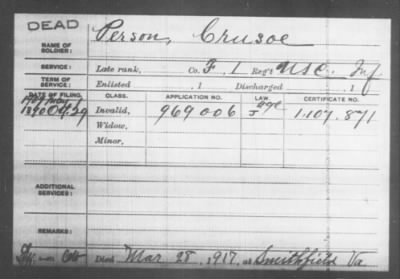 DEAD
NAME OF SOLDIER:
Person, Crusoe
SERVICE:
Late rank, Co. F. 1 Reg't U.S.C. Inf
TERM OF SERVICE:
Enlisted , 1 Discharged , 1
DATE OF FILING.
CLASS.
APPLICATION NO.
LAW.
CERTIFICATE NO.
1890
Invalid,
969006
Age
1.107.871
Widow,
Minor,
ADDITIONAL SERVICES:
REMARKS:
Died Mar 28, 1917, at Smithfield Va